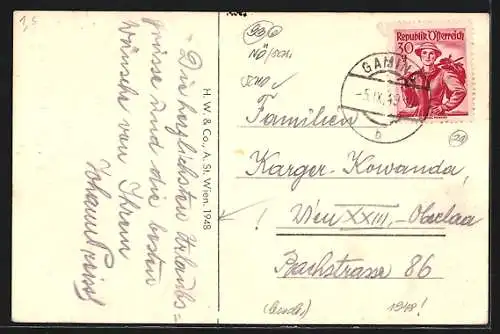 1,5
Die herzlichsten Urlaubs=
grüsse und die besten
wünsche von Ihrem
Johann
H. W. & Co., A. St. Wien. 1948
NÖ/
Republik Österreich
30
GAMING
-5.IX.49
b
Familien
Karger-Kowanda,
Wien XXIII,-Oberlaa
Bachstrasse 86
1948!